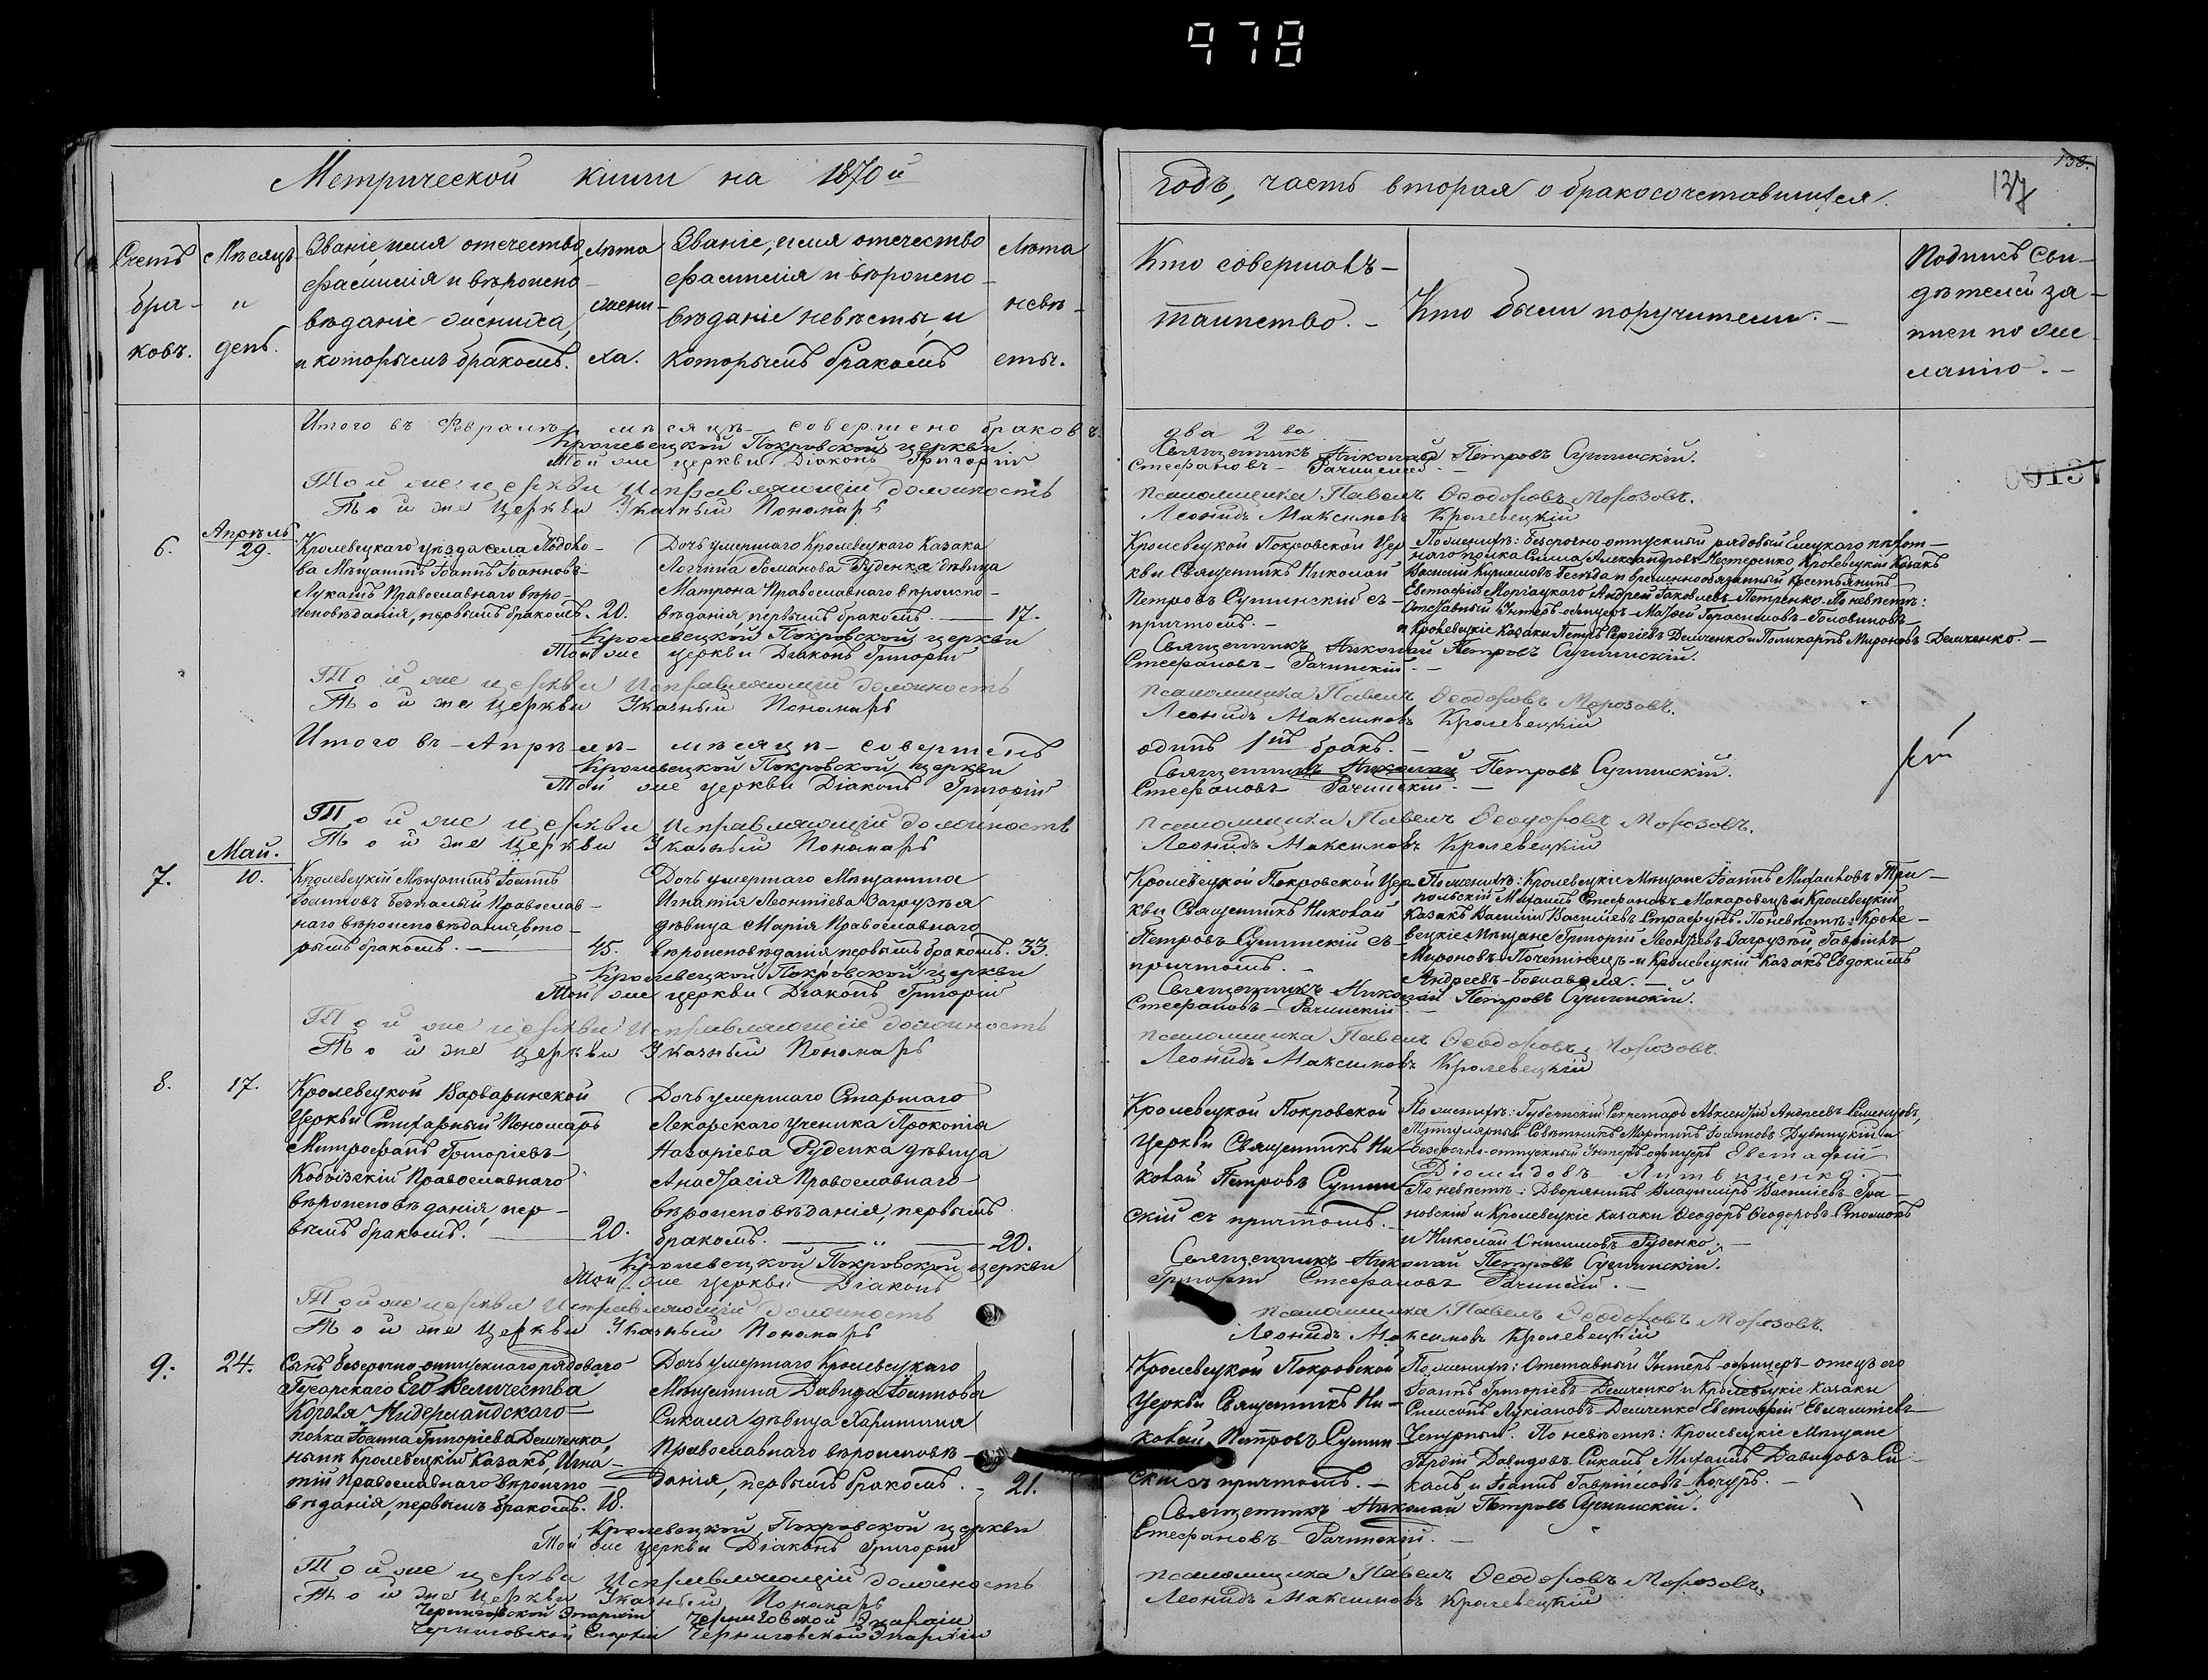 978
Метрической книги на 1870й
Годъ, часть вторая о бракосочетавшихся.
138.
137
Счетъ бра- ковъ.
Мѣсяцъ и день.
Званіе, имя отечество фамилія и вѣроиспо- вѣданіе жениха, и которымъ бракомъ.
Лѣта жени- ха.
Званіе, имя отечество фамилія и вѣроиспо- вѣданіе невѣсты, и которымъ бракомъ
Лѣта невѣ- сты.
Кто совершалъ таинство.
Кто были поручители.
Подпись сви- дѣтелей за- писи по же- ланію.
00137
Итого въ Февралѣ мѣсяцѣ совершено браковъ два 2 ва
Кролевецкой Покровской церкви Священникъ Николай Петровъ Сушинскій.
Той же церкви Діаконъ Григорій Стефановъ Рачинскій.
Той же церкви Исправляющій должность псаломщика Павелъ Ѳеодоровъ Морозовъ.
Той же Церкви Указный Пономарь Леонидъ Максимовъ Кролевецкій
6.
Апрѣль 29.
Кролевецкаго уѣзда села
ва Мѣщанинъ Іоаннъ Іоанновъ
Лукашъ Православнаго вѣро-
исповѣданія, первымъ бракомъ. 20.
Дочь умершаго Кролевецкаго Казака
Логгина Романова Руденка дѣвица
Матрона Православнаго вѣроиспо-
вѣданія, первымъ бракомъ. 17.
Кролевецкой Покровской Цер-
кви Священникъ Николай
Петровъ Сушинскій съ
причтомъ.
По женихѣ: Безсрочно-отпускный рядовый Елецкаго пѣхот-
наго полка Симма Александровъ Нестеренко, Кролевецкій Козакъ
Василій Кириловъ Бесѣда и временнообязанный крестьянинъ
Андрей Іаковлевъ Петренко. По невѣстѣ:
Отставный Унтеръ-офицеръ Матѳей Герасимовъ Головиновъ
и Кролевецкіе Казаки Петръ Сергіевъ Демченко и Поликарпъ Мироновъ Демченко.
Кролевецкой Покровской церкви Священникъ Николай Петровъ Сушинскій.
Той же церкви Діаконъ Григорій Стефановъ Рачинскій.
Той же церкви Исправляющій должность псаломщика Павелъ Ѳеодоровъ Морозовъ.
Той же Церкви Указный Пономарь Леонидъ Максимовъ Кролевецкій
Итого въ Апрѣлѣ мѣсяцѣ совершенъ одинъ 1нъ бракъ.
Кролевецкой Покровской церкви Священникъ Николай Петровъ Сушинскій.
Той же церкви Діаконъ Григорій Стефановъ Рачинскій.
Той же церкви Исправляющій должность псаломщика Павелъ Ѳеодоровъ Морозовъ.
Той же Церкви Указный Пономарь Леонидъ Максимовъ Кролевецкій
7.
Май. 10.
Кролевецкій Мѣщанинъ Іоаннъ
Іоанновъ Безпалый Православ-
наго вѣроисповѣданія, вто-
рымъ бракомъ. 45.
Дочь умершаго Мѣщанина
Игнатія Леонтіева Загрузѣя
дѣвица Марія Православнаго
вѣроисповѣданія первымъ бракомъ. 33.
Кролевецкой Покровской Цер-
кви Священникъ Николай
Петровъ Сушинскій съ
причтомъ.
По женихѣ: Кролевецкіе Мѣщане Іоаннъ Михаиловъ Три-
польскій Михаилъ Стефановъ Макаровецъ и Кролевецкій
казакъ Василій Васильевъ Страфунъ. По невѣстѣ: Кроле-
вецкіе Мѣщане Григорій Леонтьевъ Загрузѣй, Гавріилъ
Мироновъ и Кролевецкій Казакъ Евдокимъ
Андреевъ
Кролевецкой Покровской церкви Священникъ Николай Петровъ Сушинскій.
Той же церкви Діаконъ Григорій Стефановъ Рачинскій.
Той же церкви Исправляющій должность псаломщика Павелъ Ѳеодоровъ Морозовъ.
Той же Церкви Указный Пономарь Леонидъ Максимовъ Кролевецкій
8.
17.
Кролевецкой Варваринской
Церкви Стихарный Пономарь
Митрофанъ Григоріевъ
Православнаго
вѣроисповѣданія, пер-
вымъ бракомъ. 20.
Дочь умершаго Старшаго
Лекарскаго ученика Прокопія
Назаріева Руденка дѣвица
Анастасія Православнаго
вѣроисповѣданія, первымъ
бракомъ. 20.
Кролевецкой Покровской
Церкви Священникъ Ни-
колай Петровъ Сушин-
скій съ причтомъ.
По женихѣ: Губернскій Секретарь Авксентій Андреевъ Семенцовъ,
Титулярный Совѣтникъ Мартинъ Іоанновъ Дубницкій и
безсрочно-отпускный Унтеръ-офицеръ Евстафій
Діомидовъ Литвиненко.
По невѣстѣ: Дворянинъ Владиміръ Васильевъ Гра-
новскій и Кролевецкіе казаки Ѳеодоръ Ѳеодоровъ
и Николай Онисимовъ Руденко.
Кролевецкой Покровской церкви Священникъ Николай Петровъ Сушинскій.
Той же церкви Діаконъ Григорій Стефановъ Рачинскій.
Той же церкви Исправляющій должность псаломщика Павелъ Ѳеодоровъ Морозовъ.
Той же Церкви Указный Пономарь Леонидъ Максимовъ Кролевецкій
9.
24.
Сынъ безсрочно-отпускнаго рядоваго
Гусарскаго Его Величества
Короля Нидерландскаго
полка Іоанна Григоріева Демченка,
нынѣ Кролевецкій Казакъ, Игна-
тій Православнаго вѣроиспо-
вѣданія, первымъ бракомъ. 18.
Дочь умершаго Кролевецкаго
Мѣщанина Давида Іоаннова
Сикала дѣвица Харитина
Православнаго вѣроисповѣ-
данія, первымъ бракомъ. 21.
Кролевецкой Покровской
Церкви Священникъ Ни-
колай Петровъ Сушин-
скій съ причтомъ.
По женихѣ: Отставный Унтеръ-офицеръ отецъ его
Іоаннъ Григоріевъ Демченко и Кролевецкіе казаки
Симеонъ Лукіановъ Демченко Евстафій Евлампіевъ
Чепурный. По невѣстѣ: Кролевецкіе Мѣщане
Гордій Давидовъ Сикалъ, Михаилъ Давидовъ Си-
калъ и Іоаннъ Гавріиловъ Кочуръ.
Кролевецкой Покровской церкви Священникъ Николай Петровъ Сушинскій.
Той же церкви Діаконъ Григорій Стефановъ Рачинскій.
Той же церкви Исправляющій должность псаломщика Павелъ Ѳеодоровъ Морозовъ.
Той же Церкви Указный Пономарь Леонидъ Максимовъ Кролевецкій
Черниговской Епархіи Черниговской Епархіи
Черниговской Епархіи Черниговской Епархіи